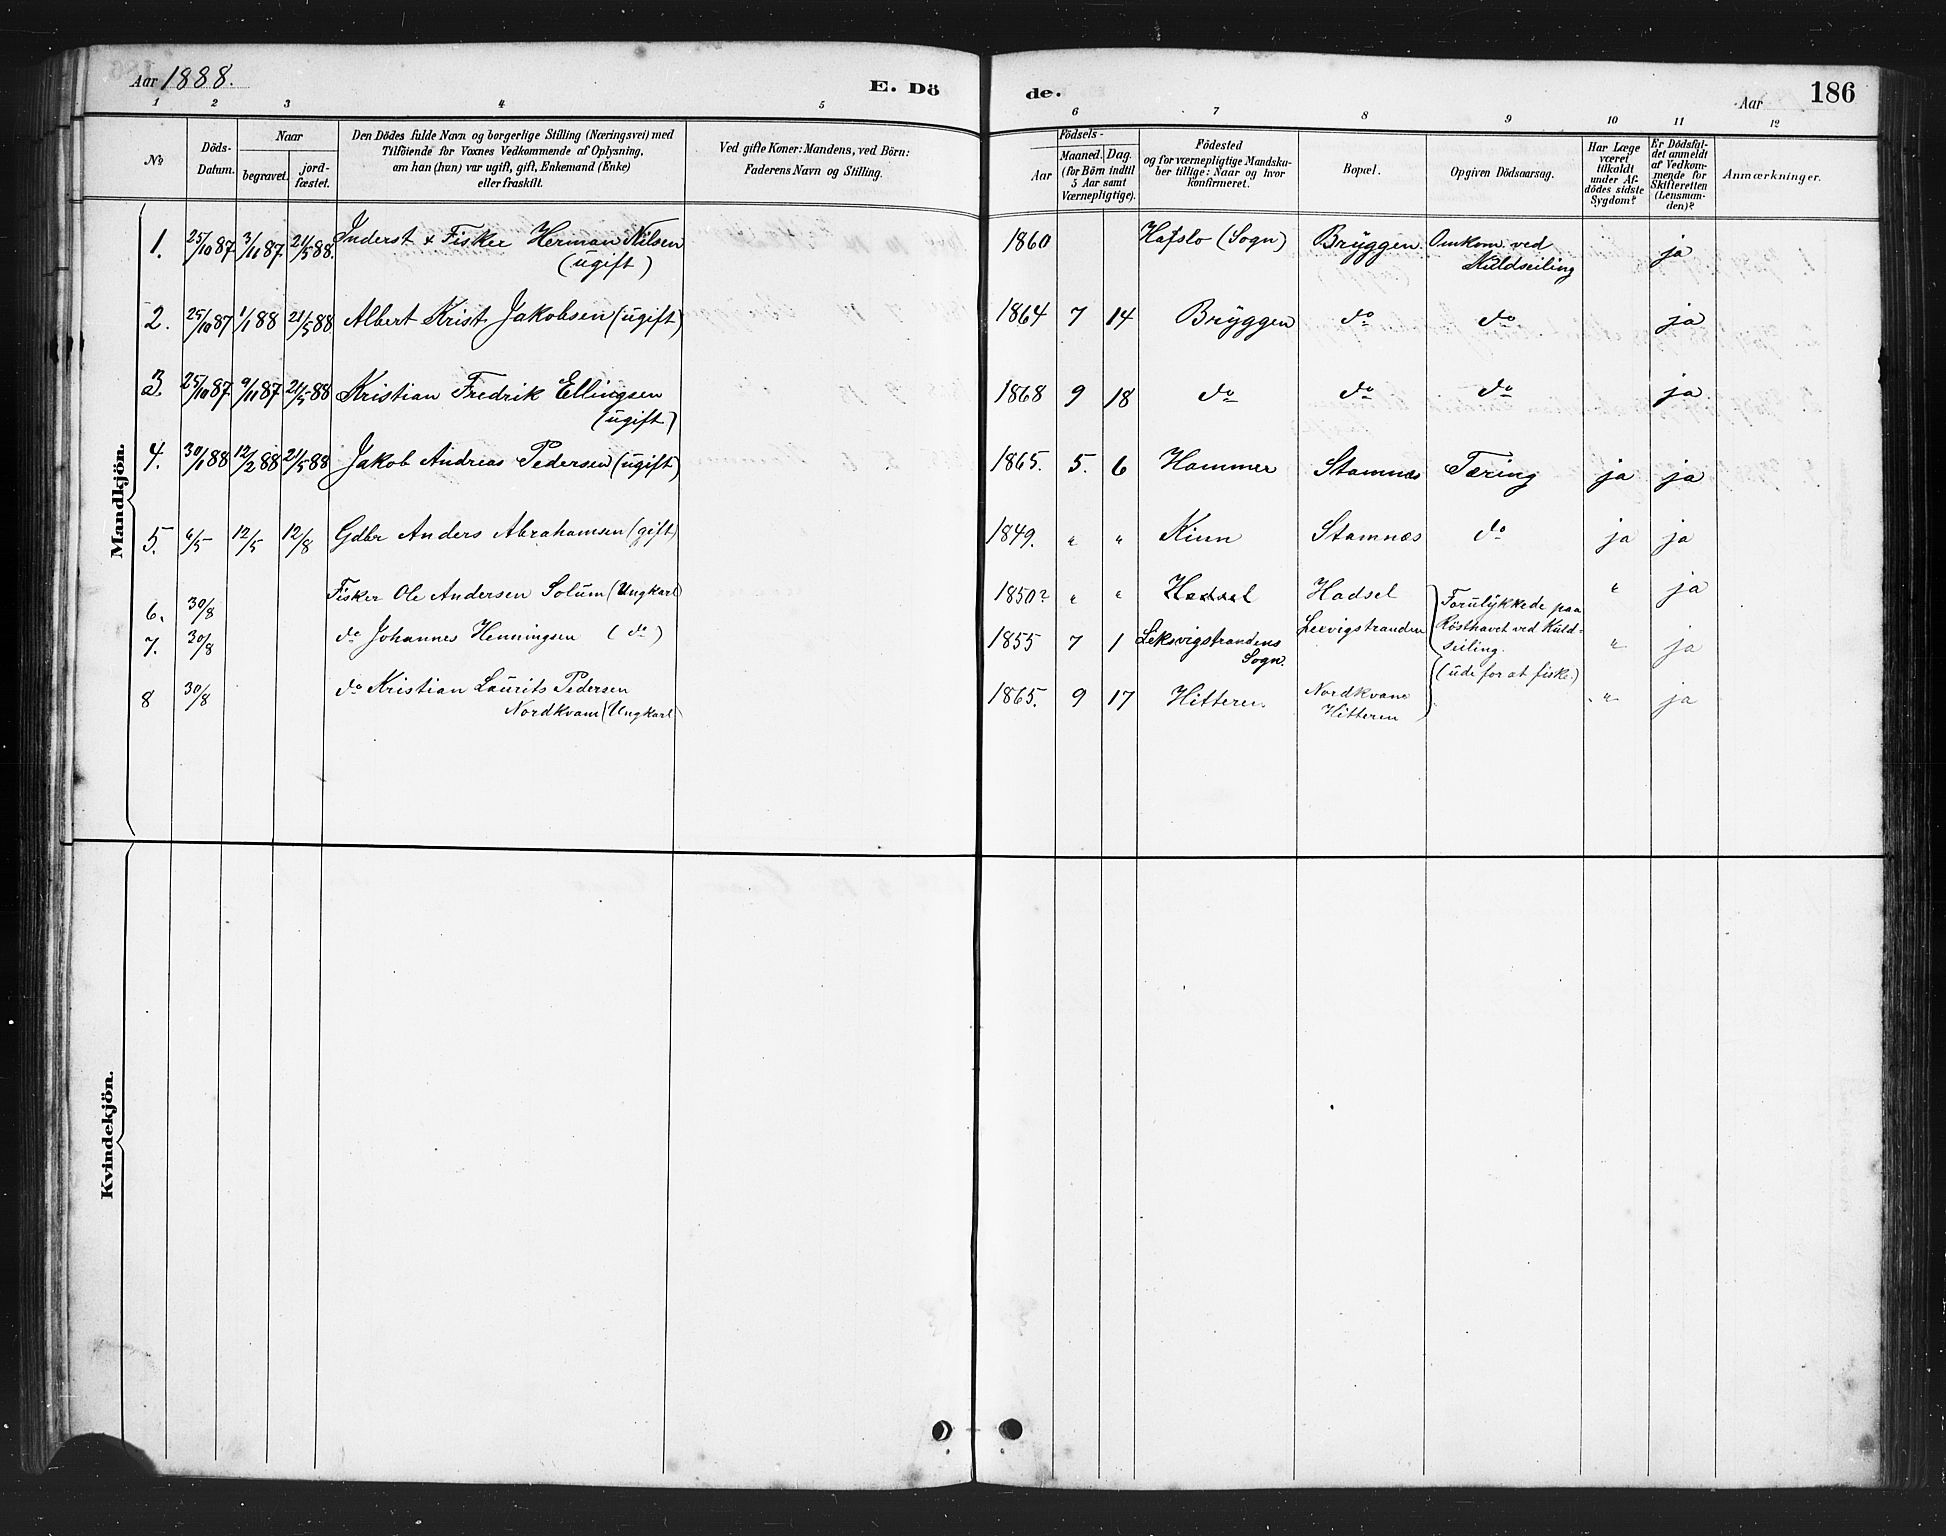 Aar 1888.
E. Dö
de.
Aar
186
1 2 3 4 5 6 7 8 9 10 11 12
No
Döds-
Datum.
Naar
begravet.
jord-
fæstet.
Den Dödes fulde Navn og borgerlige Stilling (Næringsvei) med
Tilföiende for Voxnes Vedkommende af Oplysning,
om han (hun) var ugift, gift, Enkemand (Enke)
eller fraskilt.
Ved gifte Koner: Mandens, ved Börn:
Faderens Navn og Stilling.
Födsels-
Aar
Maaned.
Dag.
(for Börn indtil
5 Aar samt
Værnepligtige).
Födested
og for værnepligtige Mandska-
ber tillige: Naar og hvor
konfirmeret.
Bopæl.
Opgiven Dödsaarsag.
Har Læge
været
tilkaldt
under Af-
dödes sidste
Sygdom?
Er Dödsfal-
det anmeldt
af Vedkom-
mende for
Skifteretten
(Lensman-
den)?
Anmærkninger.
Mandkjön.
1. 25/10 87 3/11 87. 21/5 88. Inderst & Fisker Herman Nilsen
(ugift)
1860 Hafslo (Sogn) Bryggen. Omkom. ved
Kuldseiling
ja
2. 25/10 87 1/1 88 21/5 88 Albert Krist. Jakobsen (ugift) 1864 7 14 Bryggen do do ja
3. 25/10 87 9/11 87 21/5 88 Kristian Fredrik Ellingsen
(ugift)
1868 9 18 do do do ja
4. 30/1 88 12/2 88 21/5 88 Jakob Andreas Pedersen (ugift) 1865. 5. 6 Hammer Stamnæs Tæring ja ja
5. 6/5 12/5 12/8 Gdbr Anders Abrahamsen (gift) 1849. " " Kinn Stamnæs do ja ja
6. 30/8 Fisker Ole Andersen Solum (Ungkarl) 1850? " " Hadsel Hadsel " ja
7. 30/8 do Johannes Henningsen (do) 1855 7 1 Leksvigstrandens
Sogn.
Lecvigstranden
Forulykkede paa
Rösthavet ved Kuld-
seiling.
(ude for at fiske.)
" ja
8 30/8 do Kristian Laurits Pedersen
Nordkvam (Ungkarl)
1865. 9 17 Hitteren. Nordkvam
Hitteren
" ja
Kvindekjön.